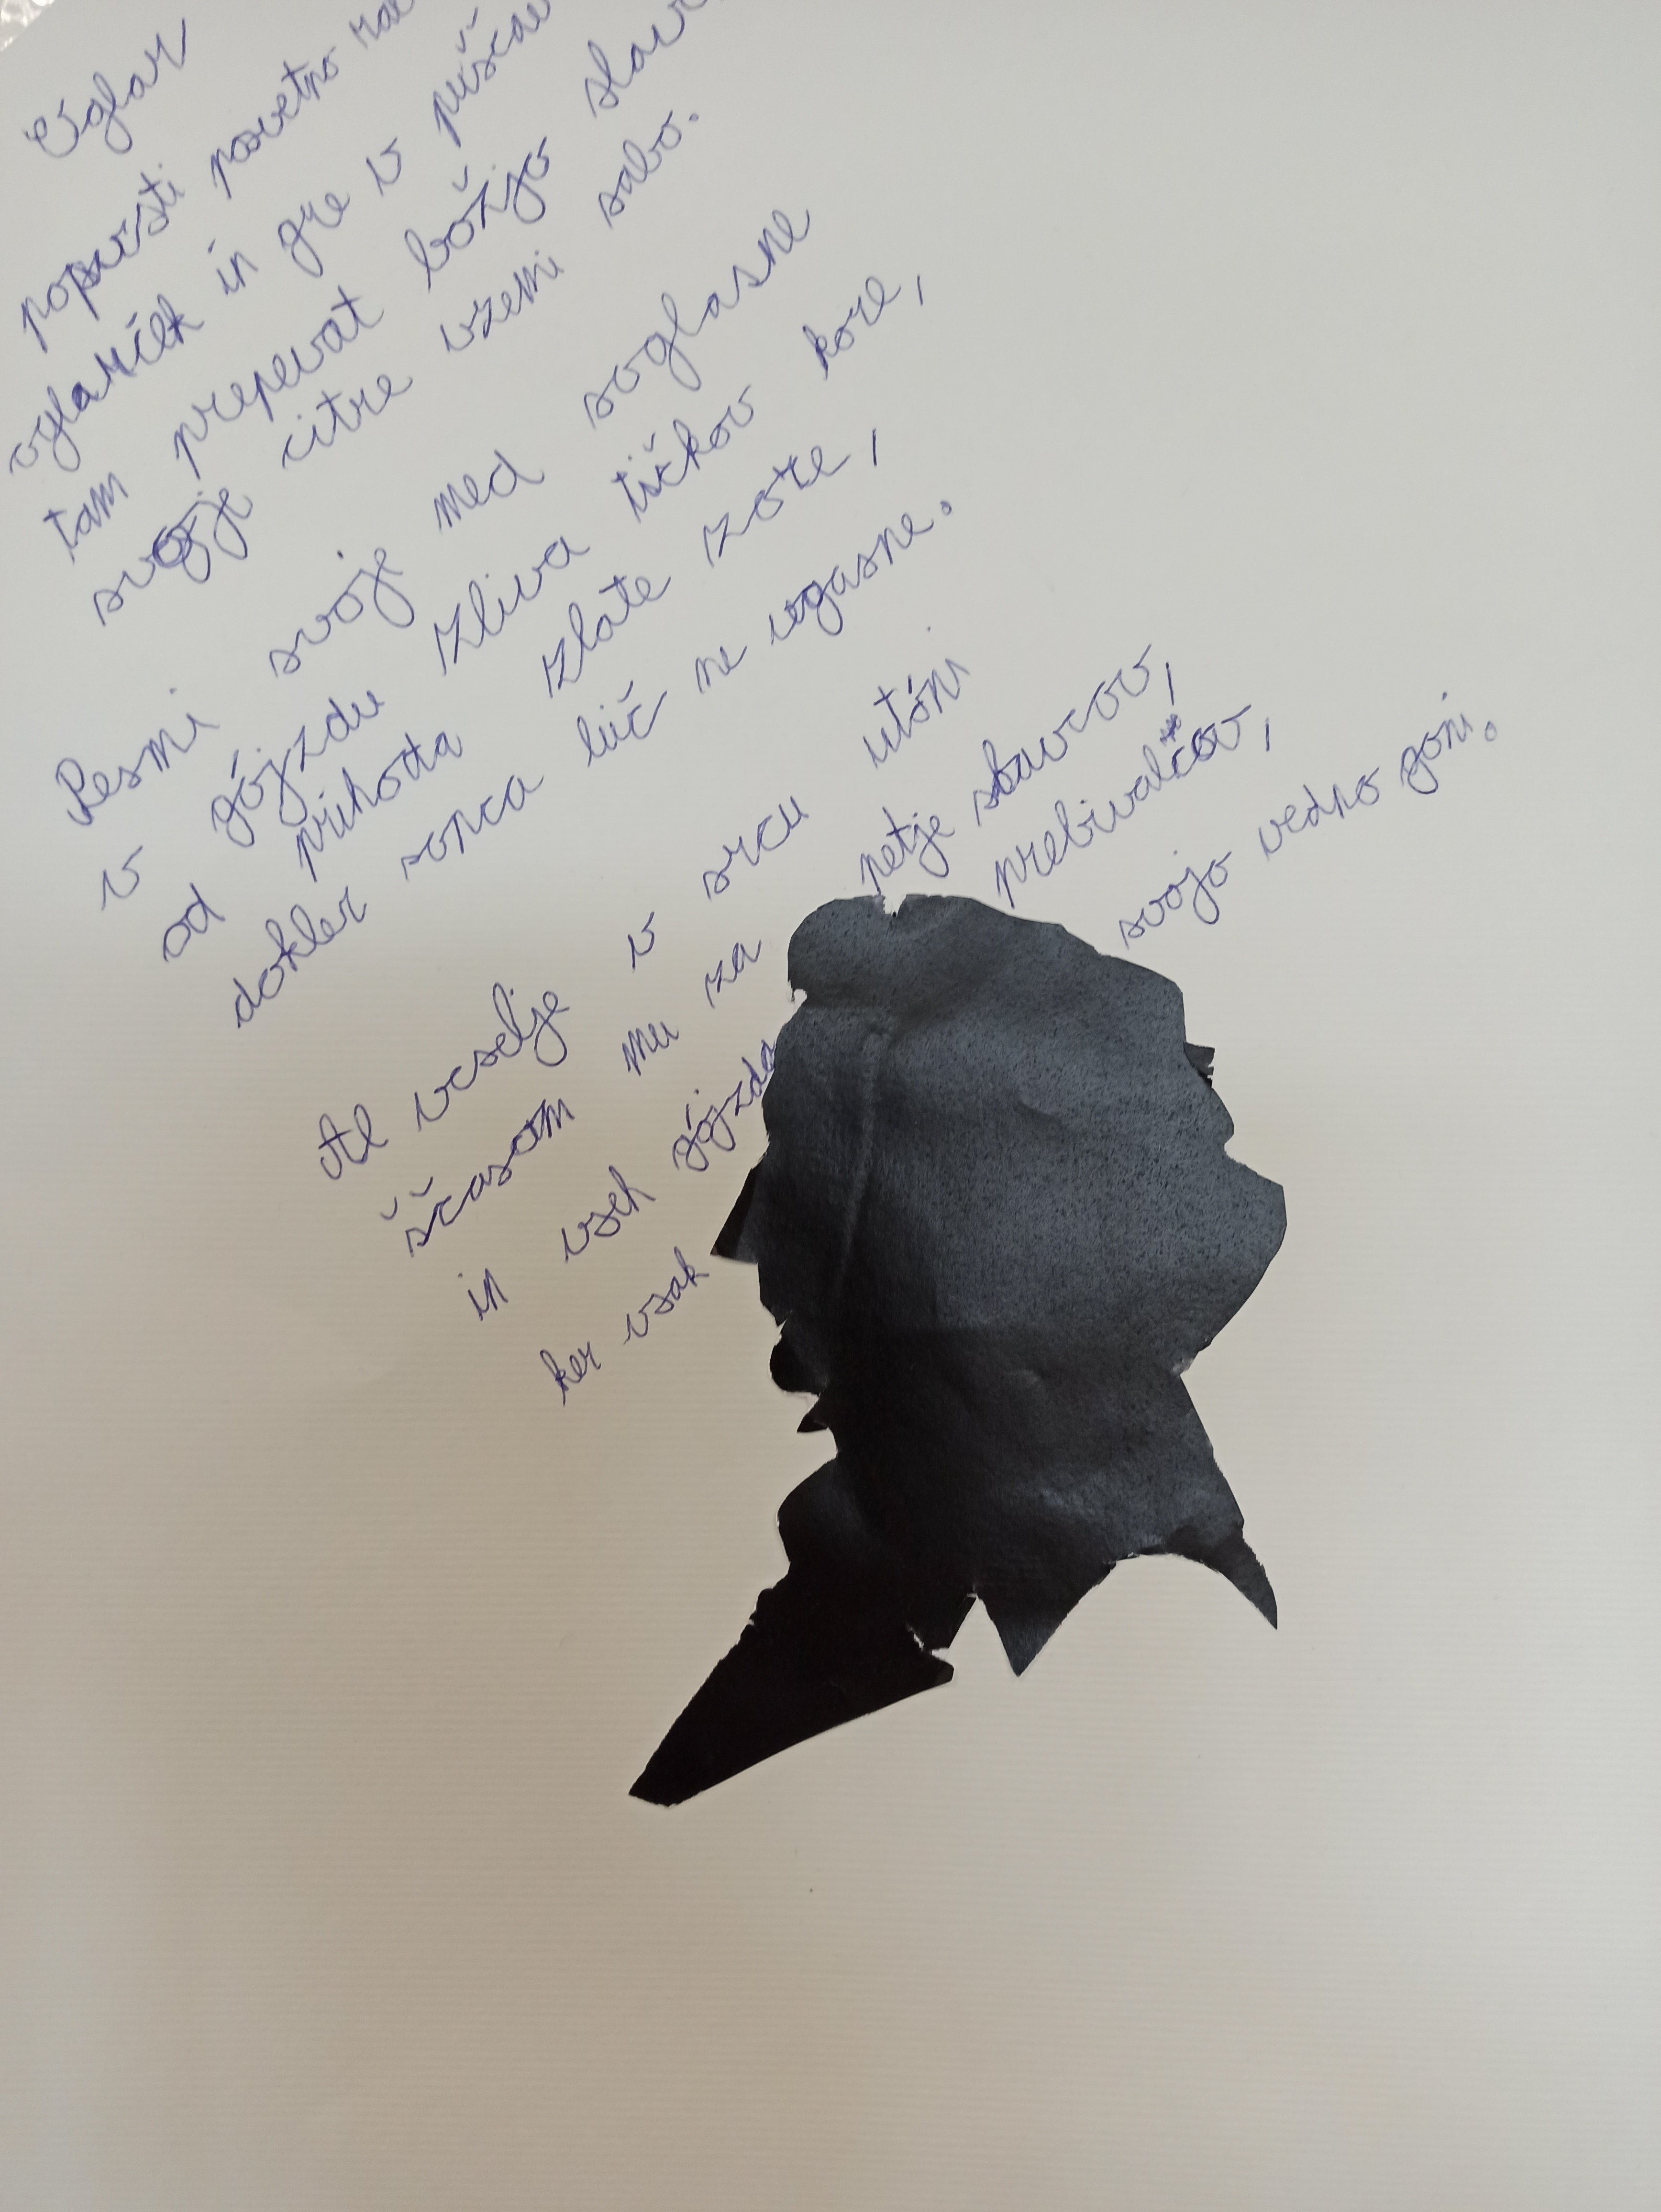 Orglar
popusti posvetno
orglarček in gre v
tam prepevat božjo
svoje citre vzemi sabo.
Pesmi svoje med soglasne
v gójzdu zliva tičkov kore,
od prihoda zlate zore,
dokler sonca luč ne ugasne.
Al veselje v srcu utóni
ščasom mu za petje slavcov,
in vseh gójzda prebivalcov,
ker vsak svojo vedno goni.